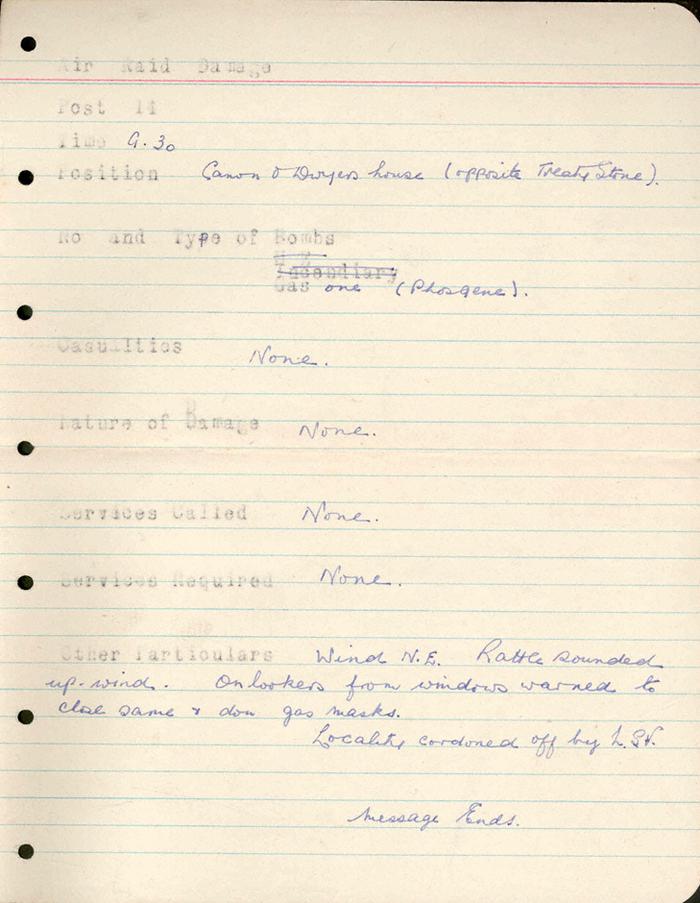 Air Raid Damage
Post 14
Time 9.30
Position Canon O'Dwyers house (opposite Treaty Stone).
No and Type of Bombs
H E
Incendiary
Gas one (Phosgene).
Casulities None.
Nature of Damage None.
Services Called None.
Services Required None.
Other Particulars Wind N.E. Rattle sounded
up-wind. Onlookers from windows warned to
close same & don gas masks.
Locality cordoned off by L.S.F.
Message Ends.